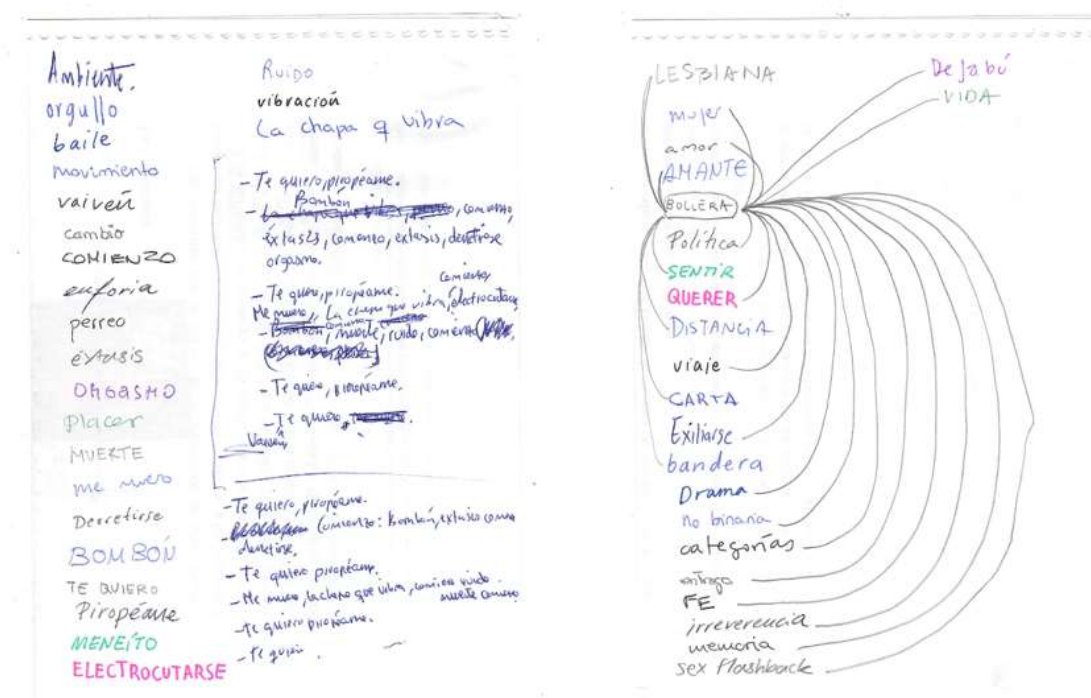 Ambiente.
orgullo
baile
movimiento
vaivén
cambio
COMIENZO
euforia
perreo
éxtasis
ORGASMO
placer
MUERTE
me muero
Derretirse
BOMBÓN
TE QUIERO
Piropéame
MENEÍTO
ELECTROCUTARSE
Ruido
vibración
La chapa q vibra
- Te quiero, piropéame.
Bombón
comienzo,
éxtasis, comienzo, extasis, derretirse
orgasmo.
Comienzo,
- Te quiero, piropéame.
Me muero, La chapa que vibra, electrocutarse
- Bombón, muerte, ruido, comienzo
- Te quiero, piropéame.
- Te quiero
Vaivén
- Te quiero, piropéame.
- Comienzo: Bombón, extasis
derretirse.
- Te quiero piropéame.
- Me muero, la chapa que vibra, comienzo ruido
muerte
- te quiero piropéame.
- te quiero.
LESBIANA
mujer
amor
AMANTE
BOLLERA
Política
SENTIR
QUERER
DISTANCIA
viaje
CARTA
Exiliarse
bandera
Drama
no binaria
categorías
entrega
FE
irreverencia
memoria
sex flashback
De Ja bú
VIDA